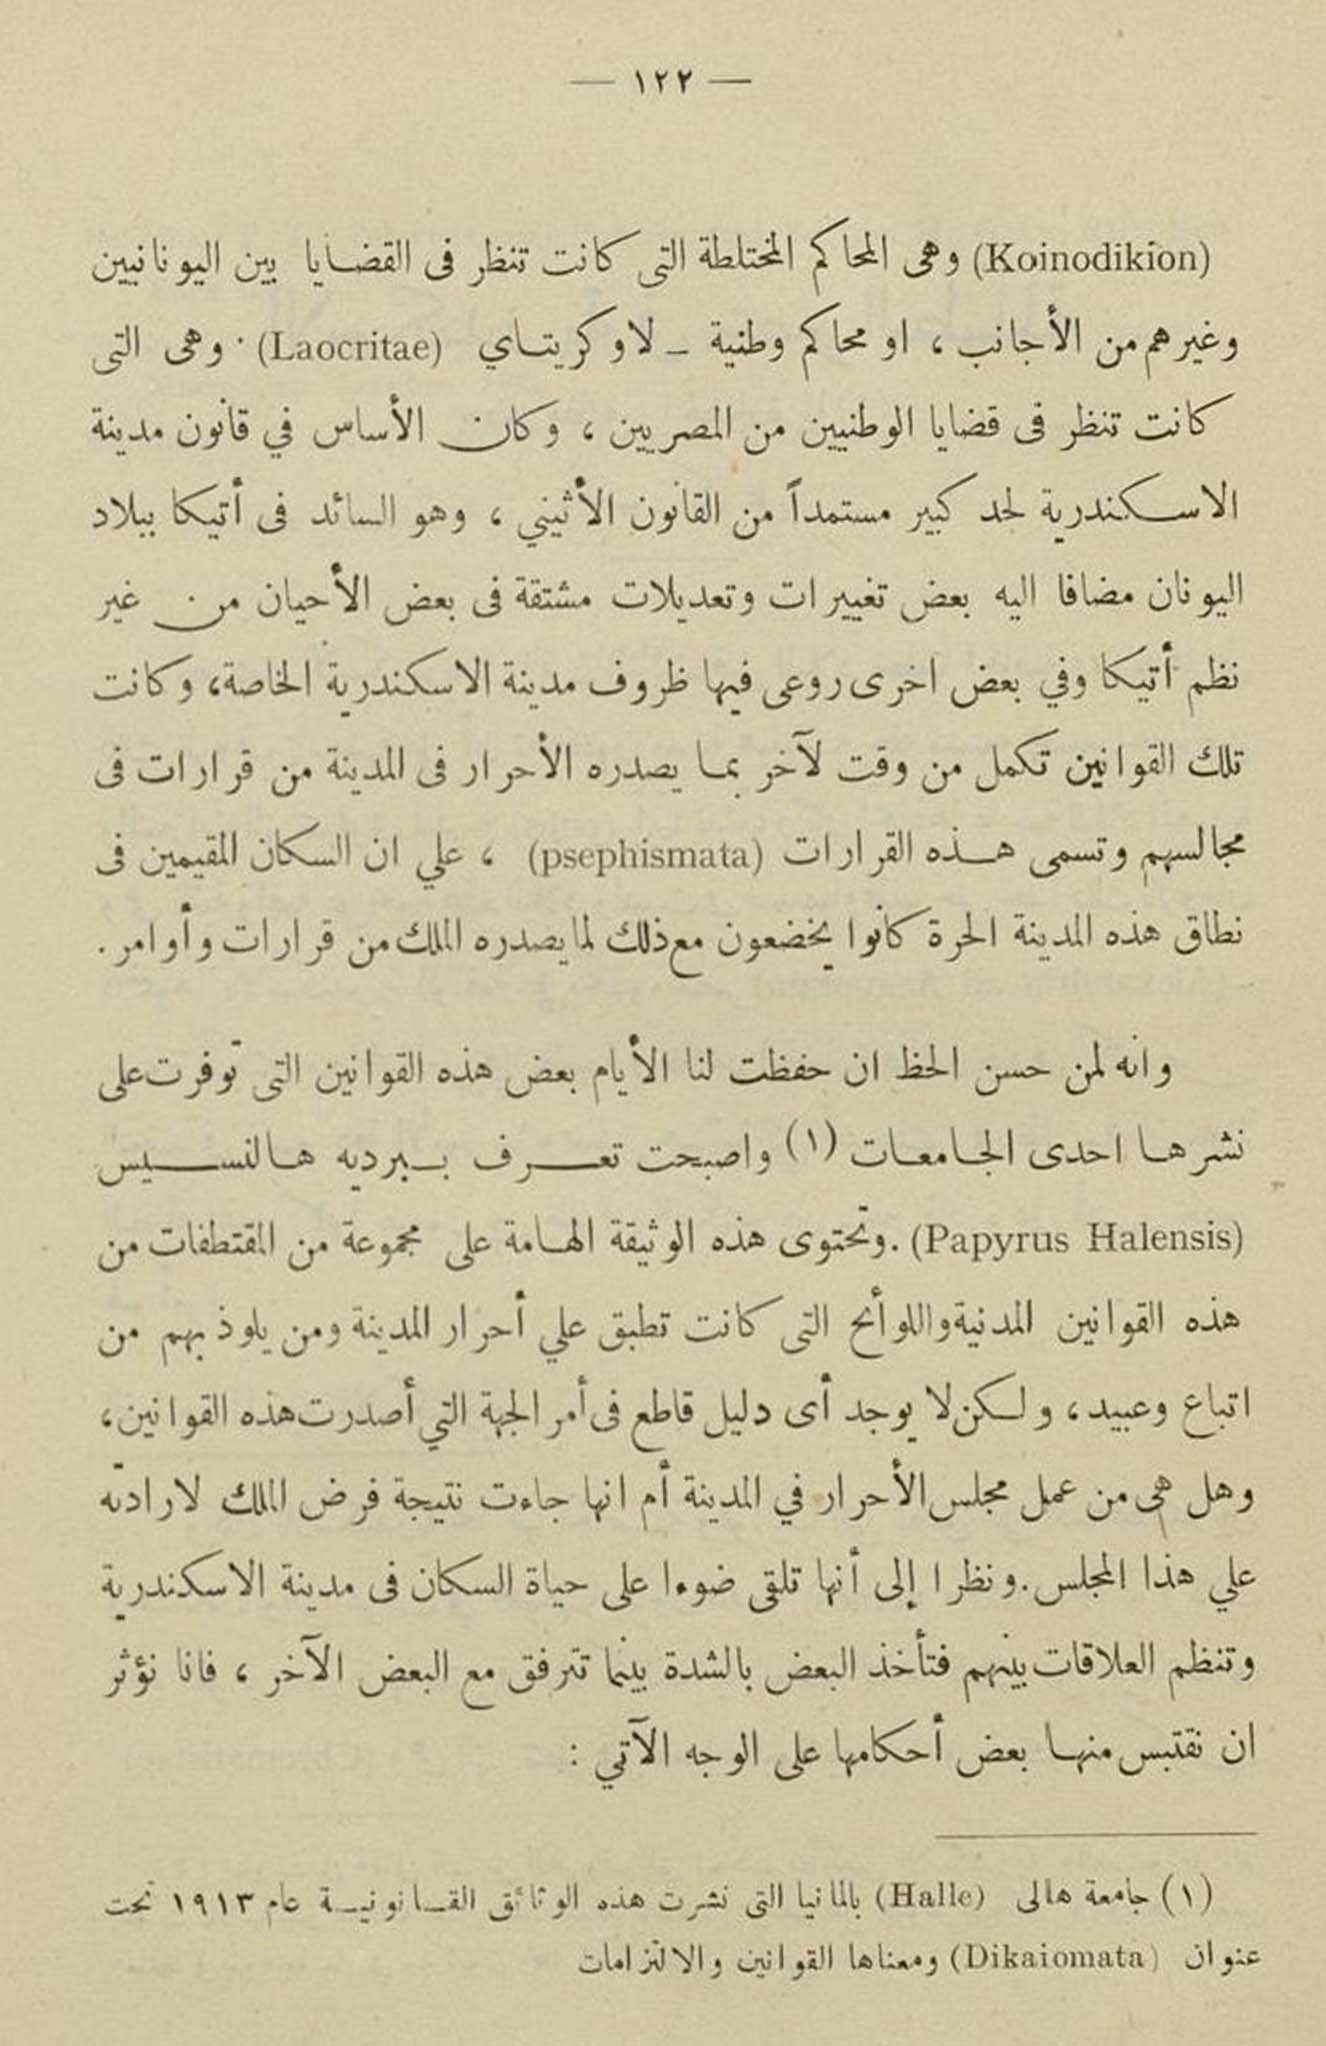 — ١٢٢ —
(Koinodikion) وهى المحاكم المختلطة التى كانت تنظر فى القضايا بين اليونانيين
وغيرهم من الأجانب ، او محاكم وطنية ـ لاوكريتاي (Laocritae) . وهى التى
كانت تنظر فى قضايا الوطنيين من المصريين ، وكان الأساس في قانون مدينة
الاسكندرية لحد كبير مستمداً من القانون الأثيني ، وهو السائد فى أتيكا ببلاد
اليونان مضافا اليه بعض تغييرات وتعديلات مشتقة فى بعض الأحيان من غير
نظم أتيكا وفي بعض اخرى روعى فيها ظروف مدينة الاسكندرية الخاصة، وكانت
تلك القوانين تكمل من وقت لآخر بما يصدره الأحرار فى المدينة من قرارات فى
مجالسهم وتسمى هذه القرارات (psephismata) ، علي ان السكان المقيمين فى
نطاق هذه المدينة الحرة كانوا يخضعون مع ذلك لما يصدره الملك من قرارات وأوامر .
وانه لمن حسن الحظ ان حفظت لنا الأيام بعض هذه القوانين التى توفرت على
نشرها احدى الجامعات (١) واصبحت تعرف ببرديه هالنسيس
(Papyrus Halensis) . وتحتوى هذه الوثيقة الهامة على مجموعة من المقتطفات من
هذه القوانين المدنية واللوأئح التى كانت تطبق علي أحرار المدينة ومن يلوذ بهم من
اتباع وعبيد ، ولكن لا يوجد أى دليل قاطع فى أمر الجهة التي أصدرت هذه القوانين ،
وهل هى من عمل مجلس الأحرار في المدينة أم انها جاءت نتيجة فرض الملك لارادته
علي هذا المجلس . ونظرا إلى أنها تلقى ضوءا على حياة السكان فى مدينة الاسكندرية
وتنظم العلاقات بينهم فتأخذ البعض بالشدة بينما تترفق مع البعض الآخر ، فانا نؤثر
ان نقتبس منها بعض أحكامها على الوجه الآتي :
(١) جامعة هالى (Halle) بالمانيا التى نشرت هذه الوثائق القانونية عام ١٩١٣ تحت
عنوان (Dikaiomata) ومعناها القوانين والالتزامات